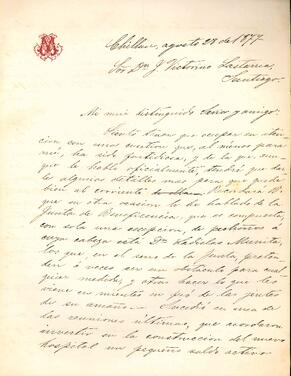 Chillan, agosto 28 de 1877.
Sor Don J. Victorino Lastarria,
Santiago.
Mi mui distinguido Señor y amigo:
Siento tener que ocupar su aten-
cion con una cuestion que, al menos para
mí, ha sido fastidiosa, y de la que, aun-
que le hablé oficialmente, tendré que dar
le algunos detalles mas para que quede
bien al corriente. Recordará U.
que en otra ocasion le he hablado de la
Junta de Beneficencia, que es compuesta,
con sola una excepcion, de pechoños a
cuya cabeza está Dn.
los que, en el seno de la Junta, preten-
den á veces ser un obstáculo para cual
quier medida, y otras hacer lo que les
viene en mientes en pró de las
de su amaño. Sucedió en una de
las reuniones últimas, que acordaron
invertir en la construccion del nuevo
hospital un pequeño saldo activo